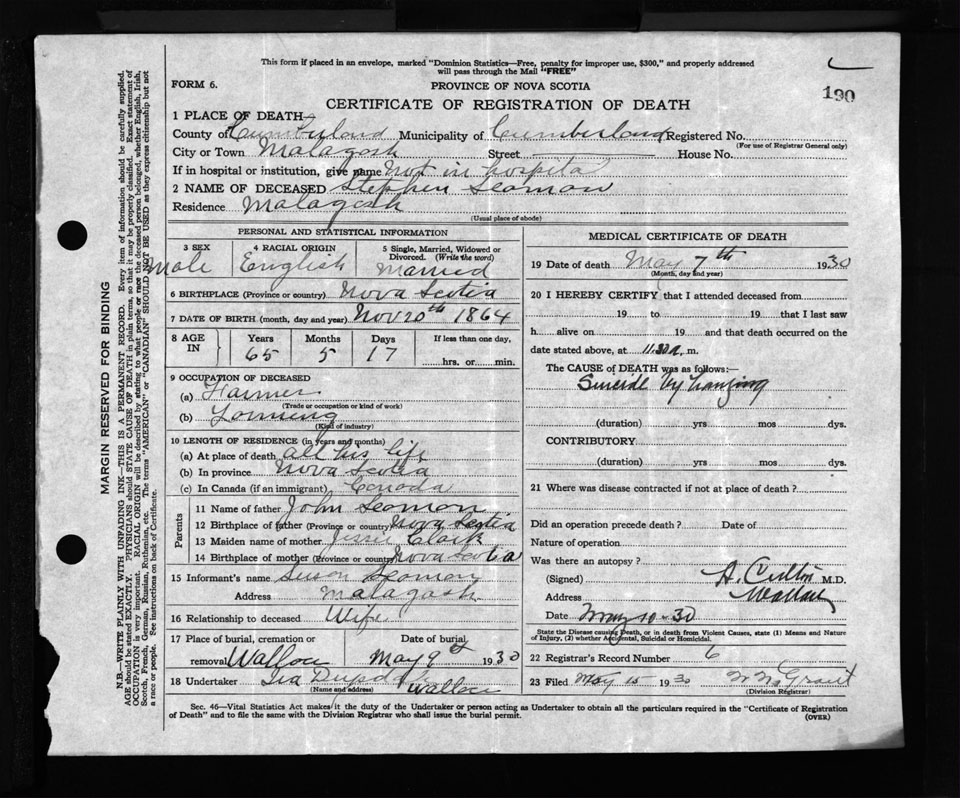 This form if placed in an envelope, marked "Dominion Statistics—Free, penalty for improper use, $300," and properly addressed
will pass through the Mail "FREE"
FORM 6.
PROVINCE OF NOVA SCOTIA
190
CERTIFICATE OF REGISTRATION OF DEATH
1 PLACE OF DEATH—
County of Cumberland Municipality of Cumberland Registered No.
(For use of Registrar General only)
City or Town Malagash Street House No.
If in hospital or institution, give name Not in hospital
2 NAME OF DECEASED Stephen Seaman
Residence Malagash
(Usual place of abode)
PERSONAL AND STATISTICAL INFORMATION
3 SEX 4 RACIAL ORIGIN 5 Single, Married, Widowed or
Divorced. (Write the word)
Male English Married
6 BIRTHPLACE (Province or country) Nova Scotia
7 DATE OF BIRTH (month, day and year) Nov 20th 1864
8 AGE IN Years Months Days If less than one day,
65 5 17 hrs. or min.
9 OCCUPATION OF DECEASED
(a) Farmer
(Trade or occupation or kind of work)
(b)
(Kind of industry)
10 LENGTH OF RESIDENCE (in years and months)
(a) At place of death all his life
(b) In province Nova Scotia
(c) In Canada (if an immigrant) Canada
Parents
11 Name of father John Seaman
12 Birthplace of father (Province or country) Nova Scotia
13 Maiden name of mother Jessie Clark
14 Birthplace of mother (Province or country) Nova Scotia
15 Informant's name Susan Seaman
Address Malagash
16 Relationship to deceased Wife
17 Place of burial, cremation or Date of burial
removal Wallace May 9th 1930
18 Undertaker Ira Wallace
(Name and address)
MEDICAL CERTIFICATE OF DEATH
19 Date of death May 7th 1930
(Month, day and year)
20 I HEREBY CERTIFY that I attended deceased from
19 to 19 that I last saw
h alive on 19 and that death occurred on
date stated above, at 11.30 a. m.
The CAUSE OF DEATH was as follows:—
Suicide by hanging
(duration) yrs mos dys.
CONTRIBUTORY
(duration) yrs mos dys.
21 Where was disease contracted if not at place of death?
Did an operation precede death? Date of
Nature of operation
Was there an autopsy?
(Signed) A. M.D.
Address Wallace
Date May 10-30
State the Disease causing Death, or in death from Violent Causes, state (1) Means and Nature
of Injury, (2) whether Accidental, Suicidal or Homicidal.
22 Registrar's Record Number 6
23 Filed May 15 1930 Grant
(Division Registrar)
Sec. 46—Vital Statistics Act makes it the duty of the Undertaker or person acting as Undertaker to obtain all the particulars required in the "Certificate of Registration
of Death" and to file the same with the Division Registrar who shall issue the burial permit.
(OVER)
MARGIN RESERVED FOR BINDING
N.B.—WRITE PLAINLY WITH UNFADING INK—THIS IS A PERMANENT RECORD. Every item of information should be carefully supplied.
AGE should be stated EXACTLY. PHYSICIANS should STATE CAUSE OF DEATH in plain terms, so that it may be properly classified. Exact statement of
OCCUPATION is very important. RACIAL ORIGIN will be described by stating to what people or race the deceased person belonged, whether English, Irish,
Scotch, French, German, Russian, Ruthenian, etc. The terms "AMERICAN" or "CANADIAN" SHOULD NOT BE USED as they express citizenship but not
a race or people. See instructions on back of Certificate.